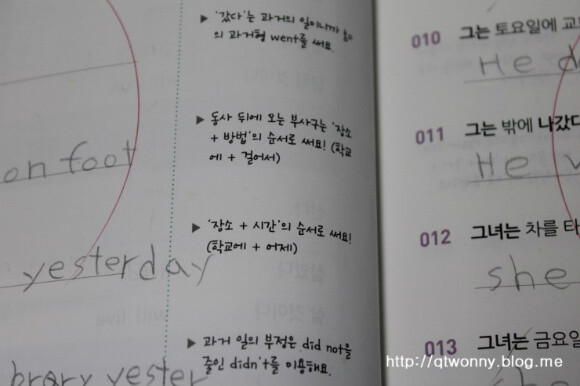 '갔다'는 과거의 일이니까
의 과거형 went를 써요.
on foot
▶ 동사 뒤에 오는 부사구는 '장소
+ 방법'의 순서로 써요! (학교
에 + 걸어서)
yesterday
▶ '장소 + 시간'의 순서로 써요!
(학교에 + 어제)
brary yester
▶ 과거 일의 부정은 did not을
줄인 didn't를 이용해요.
010 그는 토요일에 교
He d
011 그는 밖에 나갔다
He
012 그녀는 차를 타
she
013 그녀는 금요일
http://qtwonny.blog.me